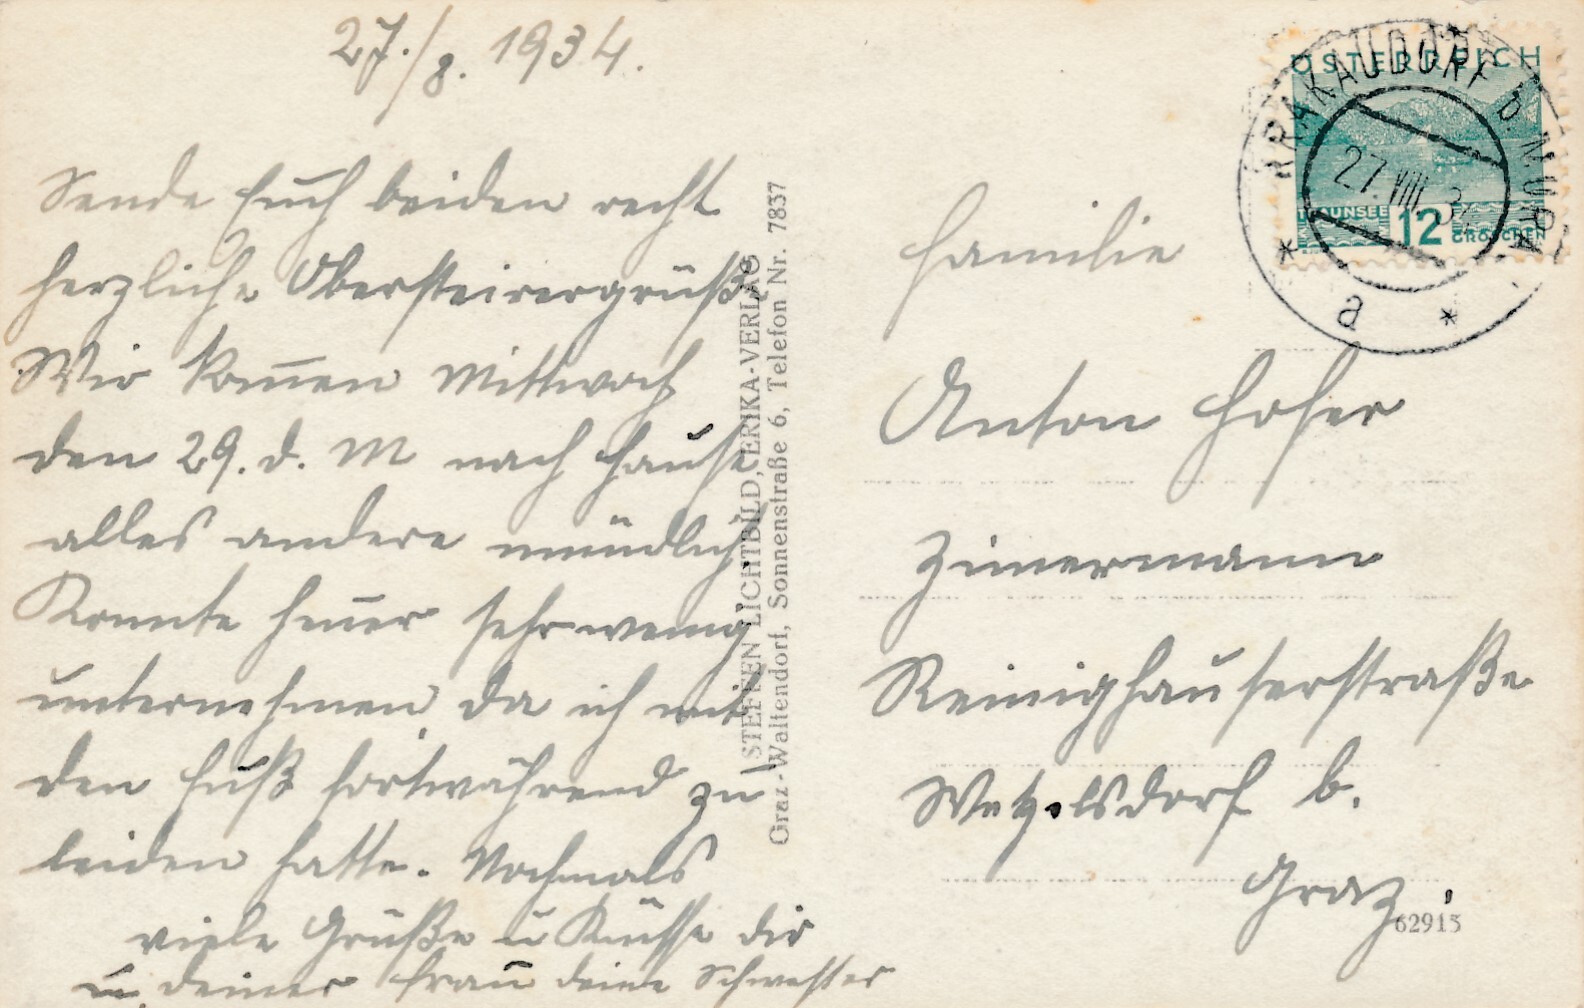 27./8. 1934.
Sende Euch beiden recht
herzliche Obersteirergrüße
Wir kom̄en Mittwoch
den 29. d. M nach Hause
alles andere mündlich
Konnte heuer sehr wenig
unternehmen da ich mit
den Fuß fortwährend zu
leiden hatte. Nochmals
viele Grüße u Küsse dir
u. deiner Frau deine Schwester
STEFFEN LICHTBILD, ERIKA-VERLAG
Graz-Waltendorf, Sonnenstraße 6, Telefon Nr. 7837
ÖSTERREICH
TRAUNSEE 12 GROSCHEN
KRAKAUDORF b. MURAU
27. VIII. 34
* a *
Familie
Anton Hofer
Zim̄ermann
Reinighauserstraße
Wetzelsdorf b.
Graz.
62913